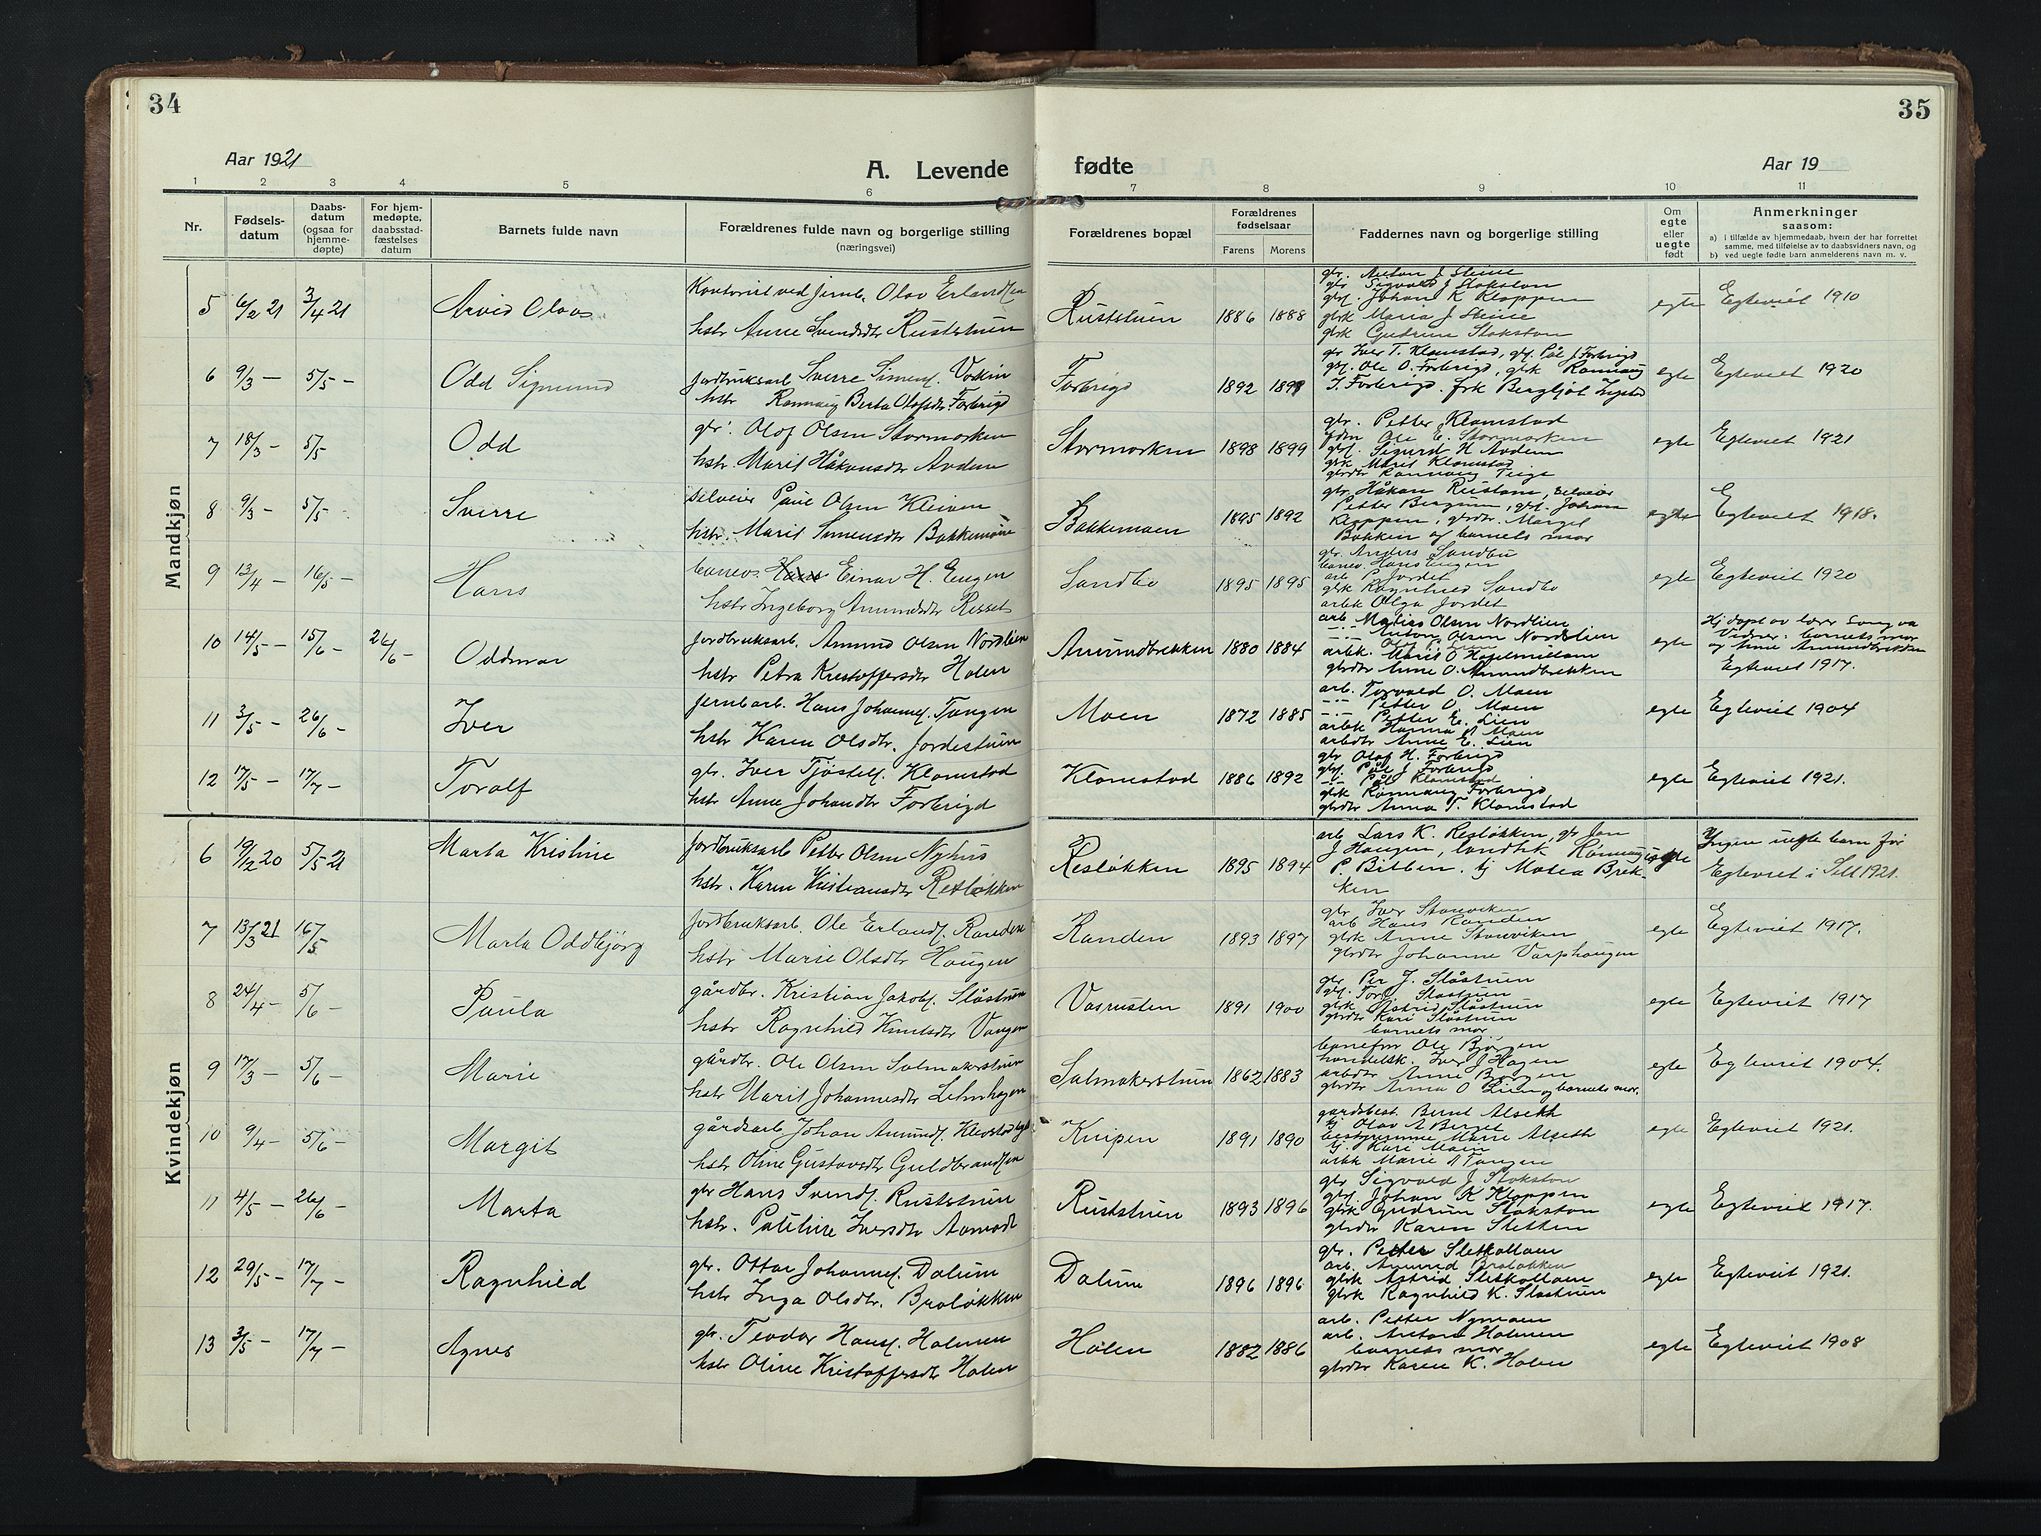 34
35
Aar 1921
A. Levende
fødte
Aar 19
1 2 3 4 5 6 7 8 9 10 11
Nr.
Fødsels-
datum
Daabs-
datum
(ogsaa for
hjemme-
døpte)
For hjem-
medøpte,
daabsstad-
fæstelses
datum
Barnets fulde navn
Forældrenes fulde navn og borgerlige stilling
(næringsvei)
Forældrenes bopæl
Forældrenes
fødselsaar
Farens Morens
Faddernes navn og borgerlige stilling
Om
egte
eller
uegte
født
Anmerkninger
saasom:
a) i tilfælde av hjemmedaab, hvem der har forrettet
samme, med tilføielse av to daabsvidners navn, og
b) ved uegte fødte barn anmelderens navn m. v.
Mandkjøn
5 6/2 21 3/4 21 Arvid Olav
Kontorist ved jernb. Olav Erlandsen
hstr Anne Svendsdtr Ruststuen
Ruststuen 1886 1888
gbr. Anton J Steine
gbr Sigvald J Stokston
gbs. Johan K Kloppen
gbrk Maria J Steine
gbrk Gudrun Stokston
egte Egteviet 1910
6 9/3 — 5/5 — Odd Sigmund
jordbruksarb Sverre Simens.
hstr Rønnaug Berta Olafsdtr Forbrigd
Forbrigd 1892 1898
gbr Iver T. Klomstad, gbs. Pål J Forbrigd
gbs. Ole O. Forbrigd, gbrk Rønnaug
J. Forbrigd. frk Bergljot
egte Egteviet 1920
7 18/3 — 5/5 Odd
gbr. Olof Olsen Stormorken
hstr. Marit Håkensdtr Avdem
Stormorken 1898 1899
gbr. Petter Klomstad
Ole E. Stormorken
gbs. Sigurd H Avdem
gbrk Marit Klomstad
gbrdtr Rønnaug Teige
egte Egteviet 1921
8 9/3 — 5/5 — Sverre
selveier Paul Olsen Kleiven
hstr. Marit Simensdtr Bakkemoen
Bakkemoen 1895 1892
gbr. Håkon Rustom, selveier
Petter Bergum, gbs. Johan
Kloppen, gbrdtr. Margit
Bakken og barnets mor
egte Egteviet 1918.
9 13/4 — 16/5 — Hans
banevs. Einar H. Engen
hstr Ingeborg Amundsdtr Resset
Sandbo 1895 1895
gbr. Anders Sandbu
banevs. Hans Engen
arb P. Jordet
gbrk Ragnhild Sandbo
arbk Olga Jordet
egte Egteviet 1920
10 14/5 — 15/6 — 26/6 — Oddmar
jordbruksarb. Amund Olsen Nordlien
hstr Petra Kristoffersdtr Holen
Amundbrekken 1880 1884
arb. Matias Olsen Nordlien
Anton Olsen Nordslien
arbk. Marit O
gbrdtr Anne O. Amundbrekken
egte Hj. døpt av lærer
Vidner: barnets mor
og Anne Amundbrekken
Egteviet 1917.
11 3/5 — 26/6 — Iver
jernbarb. Hans Johannes. Tangen
hstr Karen Olsdtr. Jordestuen
Moen 1872 1885
arb. Torvald O. Moen
Petter O. Moen
Petter E. Lien
arbk Hanna A Moen
arbdtr Anne E. Lien
egte Egteviet 1904
12 17/5 — 17/7 — Toralf
gbr. Iver Tjøstels. Klomstad
hstr Anne Johansdtr Forbrigd
Klomstad 1886 1892
gbr Olaf H. Forbrigd
gbs. Pål J Forbrigd
Pål Klomstad
gbrk Rønnaug Forbrigd
gbrdtr Anna T. Klomstad
egte Egteviet 1921.
Kvindekjøn
6 19/12 20 5/5 21 Marta Kristine
jordbruksarb Petter Olsen Nyhus
hstr. Karen Kristiansdtr Resløkken
Resløkken 1895 1894
arb Lars K. Resløkken, gbr Jon
J Haugen, landhk Rønnaug
P. Bitben. tj Matea Brek-
ken
egte Ingen uegte barn før
Egteviet i Sell 1921.
7 13/3 21 16/5 Marta Oddbjörg
jordbruksarb. Ole Erlands. Randen
hstr Marie Olsdtr Haugen
Randen 1893 1897
gbr Iver Storviken
arb Hans Randen
gbrk Anne Storviken
gbrdtr Johanne Varphaugen
egte Egteviet 1917.
8 24/4 — 5/6 — Paula
gårdbr. Kristian Jakobs. Slåstuen
hstr Ragnhild Knutsdtr Vangen
Vasrusten 1891 1900
gbr Per J. Slåstuen
gbs. Tor J. Slåstuen
gbrk Astrid Slåstuen
gbrdtr Kari Slåstuen
barnets mor
egte Egteviet 1917
9 17/3 — 5/6 — Marie
gårdbr. Ole Olsen Salmakerstuen
hstr Marit Johannesdtr Lehnhagen
Salmakerstuen 1862 1883
baneform Ole Bjørgen
handelsk. Iver J Hagen
arbdtr Anne Bjørgen
gbrdtr Anna O Lien og barnets mor.
egte Egteviet 1904.
10 9/4 — 5/6 — Margit
gårdsarb Johan Amunds.
hstr Oline Gustavsdtr Guldbrandsen
Knipen 1891 1890
gårdsbest. Bernt Alseth
tj Olav A Berget
bestyrerinne Marie Alseth
tj. Kari Moen
arbk Marie A Tangen
egte Egteviet 1921.
11 4/5 — 26/6 — Marta
gbr Hans Svends. Ruststuen
hstr. Pauline Iversdtr Aamodt
Ruststuen 1893 1896
gbr Sigvald J Stokston
gbs. Johan K Kloppen
gbrk Gudrun Stokston
gbrdtr Karen Sletten
egte Egteviet 1917.
12 29/5 — 17/7 — Ragnhild
gbr. Ottar Johannes. Dalum
hstr Inga Olsdtr. Braløkken
Dalum 1896 1896
gbr. Petter Sletkollom
arb. Amund Braløkken
gbrk Astrid Sletkollom
gbrk Ragnhild K. Slåstuen
egte Egteviet 1921.
13 3/5 — 17/7 — Agnes
gbr. Teodor Hans. Holmen
hstr Oline Kristoffersdtr Holen
Holen 1882 1886
arb. Petter Nymoen
arb. Anton Holmen
barnets mor
gbrdtr Karen K. Holen
egte Egteviet 1908